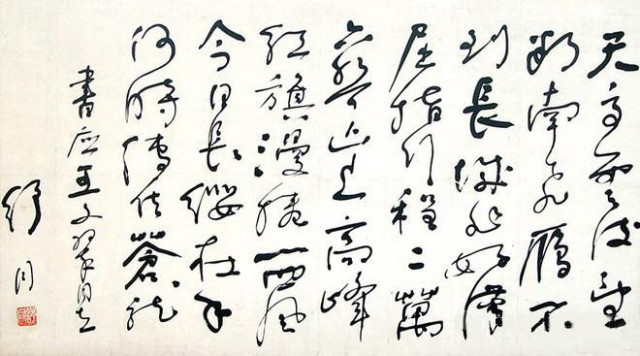 天高雲淡望
断南飞雁不
到長城非好漢
屈指行程二萬
六盤山上高峰
红旗漫捲西风
今日長缨在手
何時缚住蒼龙
書应王文同志
舒同